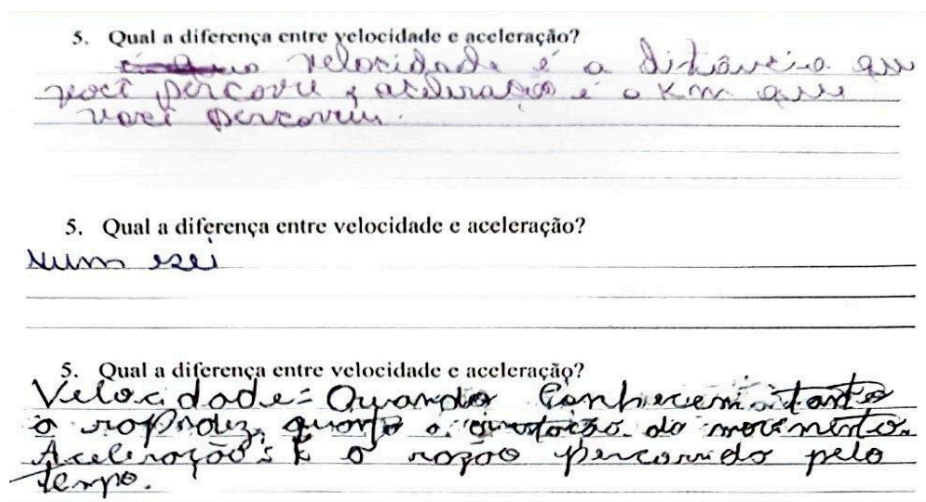 5. Qual a diferença entre velocidade e aceleração?
velocidade é a distância que
você percorre e aceleração é o Km que
você percorreu.
5. Qual a diferença entre velocidade e aceleração?
Num sei
5. Qual a diferença entre velocidade e aceleração?
Velocidade = Quando Conhecemos tanto
a rapidez, quanto a orientação do movimento.
Aceleração = É a razão percorrido pelo
tempo.